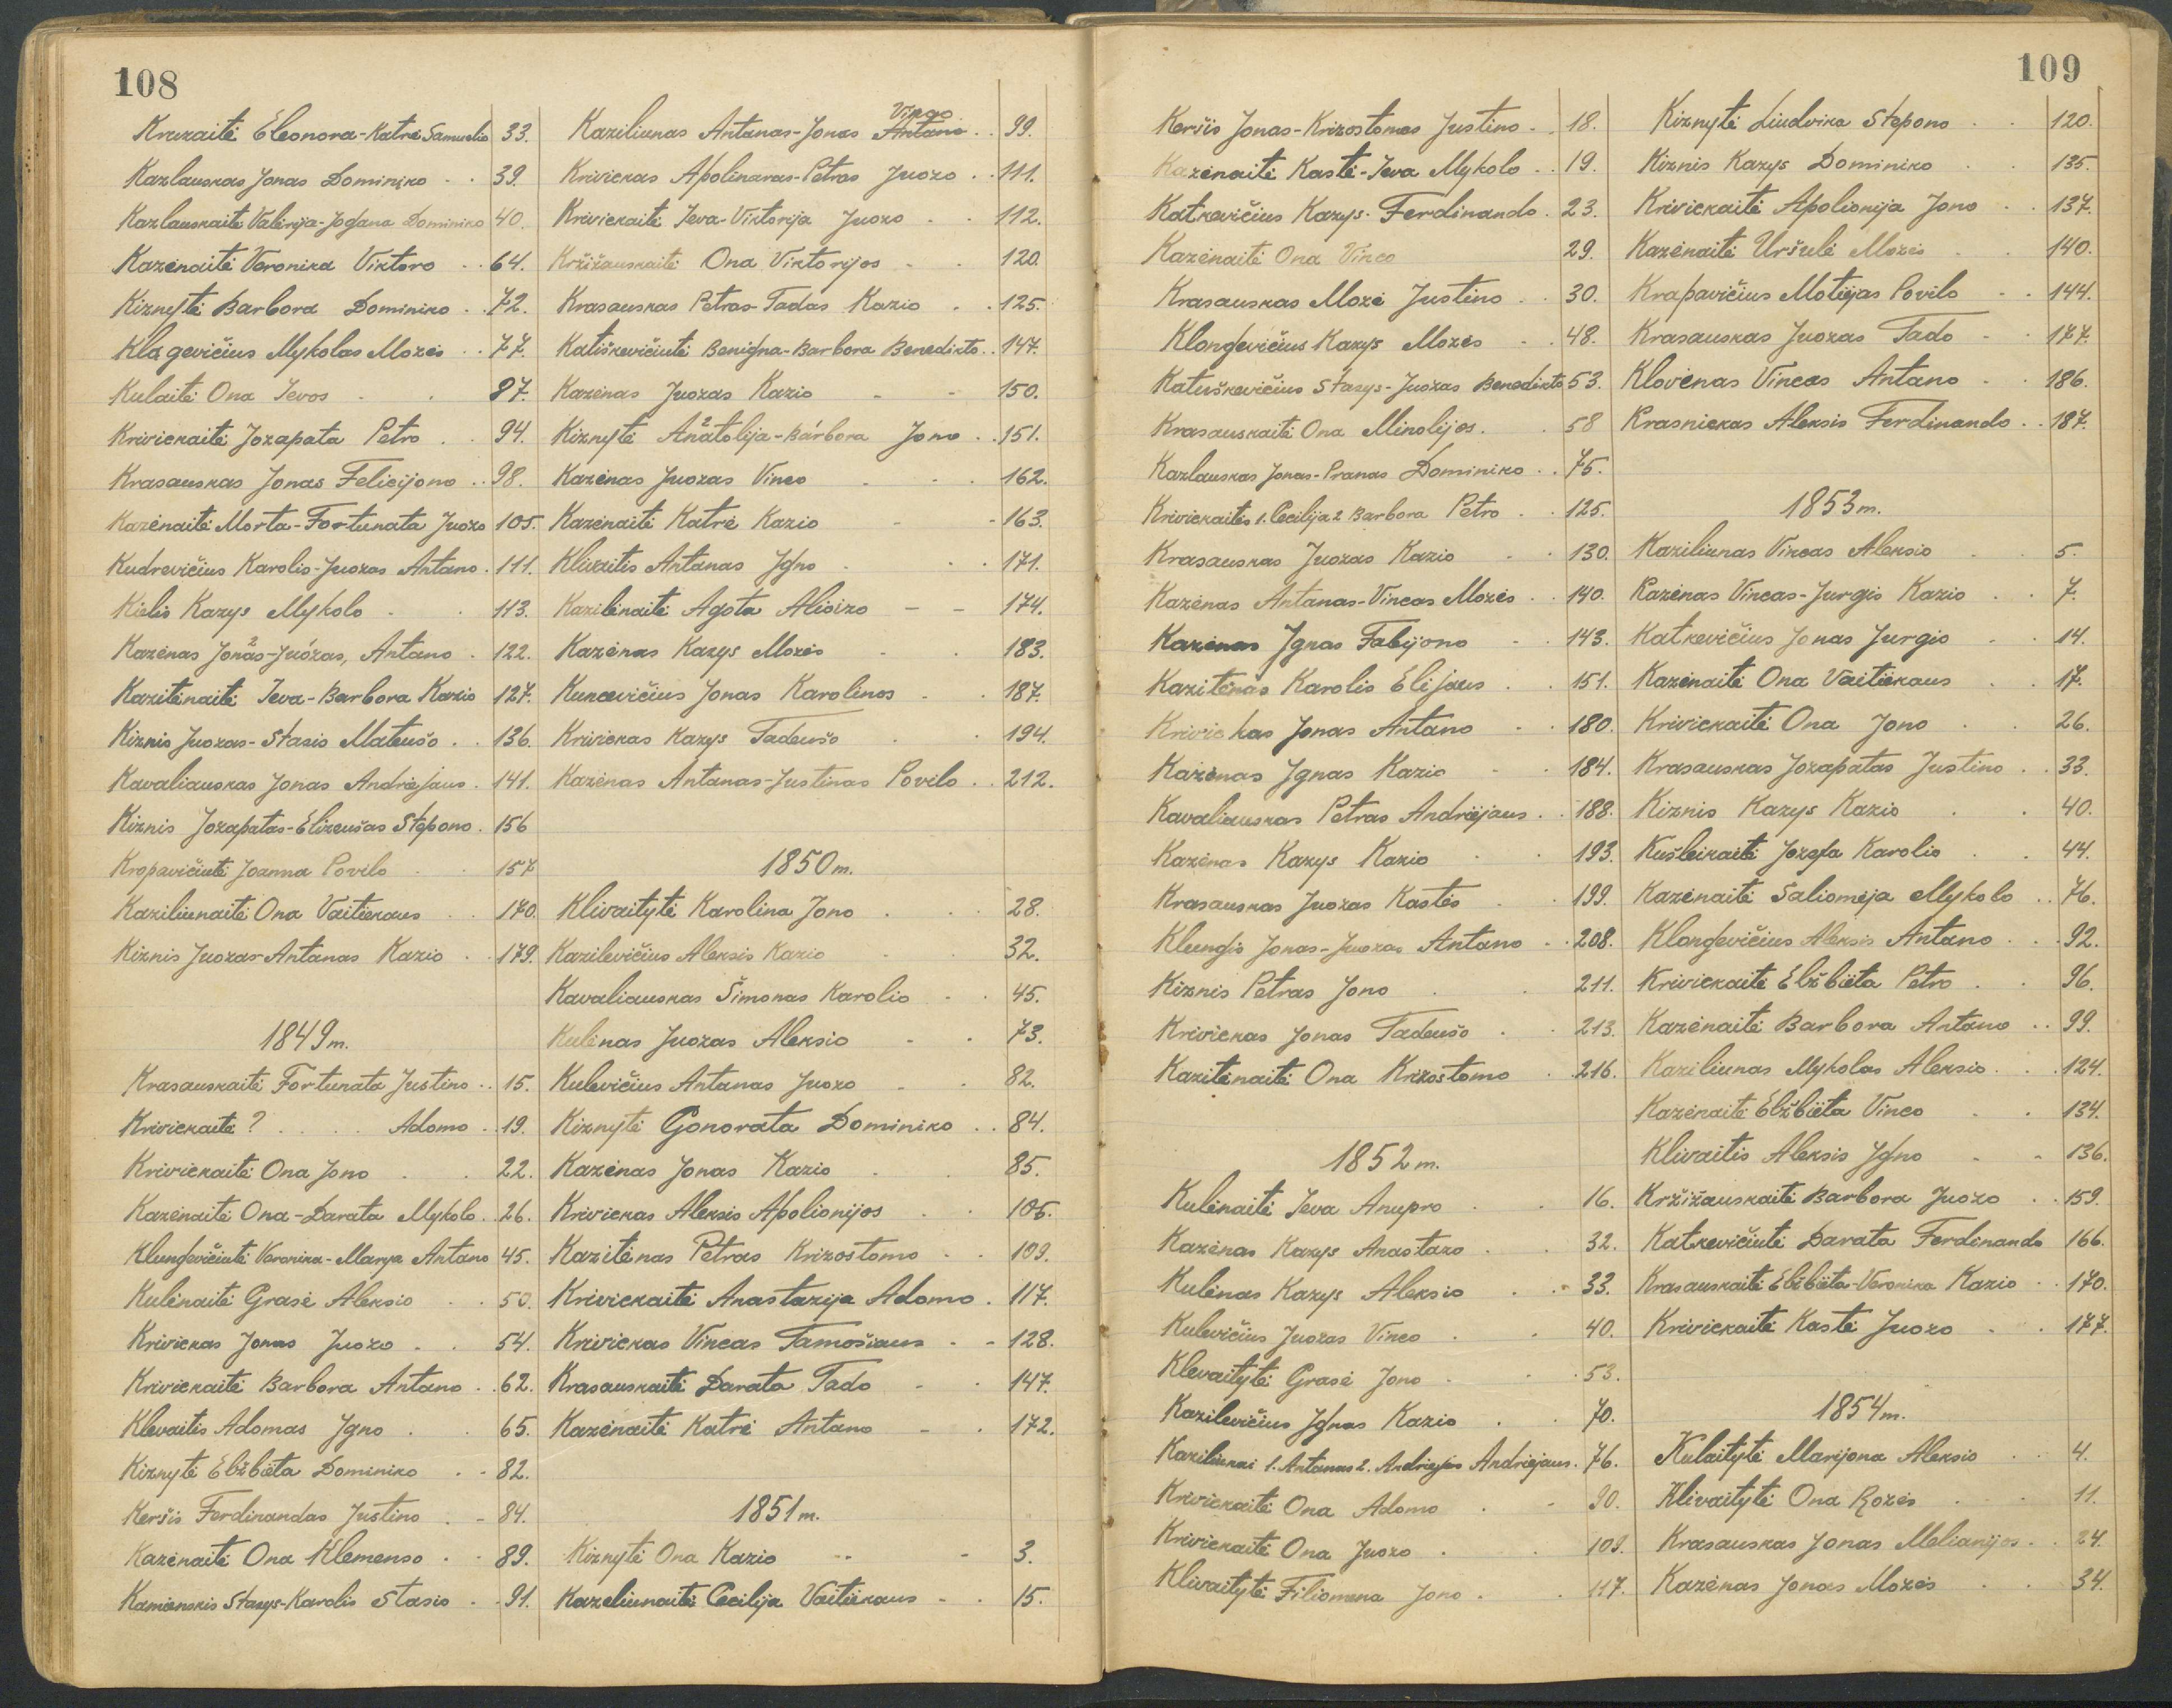 108
Kruzaitė Eleonora-Katrė Samuelio 33.
Kazlauskas Jonas Dominiko . . 39.
Kazlauskaitė Valerija-Jogana Dominiko 40.
Kazėnaitė Veronika Viktoro . . 64.
Kiznytė Barbora Dominiko . . 72.
Klagevičius Mykolas Mozės . . 77.
Kulaitė Ona Ievos . . 87.
Krivickaitė Jozapata Petro . . 94.
Krasauskas Jonas Felicijono . . 98.
Kazėnaitė Morta-Fortunata Juozo 105.
Kudrevičius Karolis-Juozas Antano . 111.
Kielis Kazys Mykolo . . 113.
Kazėnas Jonas-2Juozas, Antano . 122.
Kazitėnaitė Ieva-Barbora Kazio 127.
Kiznis Juozas-Stasis Mateušo . . 136.
Kavaliauskas Jonas Andriejaus . 141.
Kiznis Jozapatas-Elizeušas Stepono . 156
Kropavičiutė Joanna Povilo . . 157
Kaziliunaitė Ona Vaitiekaus . . 170.
Kiznis Juozas-Antanas Kazio . . 179.
1849 m.
Krasauskaitė Fortunata Justino . . 15.
Krivickaitė ? . . . . Adomo . 19.
Krivickaitė Ona Jono . . 22.
Kazėnaitė Ona-Darata Mykolo . . 26.
Klungevičiutė Veronika-Marija Antano 45.
Kulėnaitė Grasė Aleksio . . 50.
Krivickas Jonas Juozo . . 54.
Krivickaitė Barbora Antano . . 62.
Klevaitis Adomas Igno . . 65.
Kiznytė Elžbieta Dominiko . . 82.
Keršis Ferdinandas Justino . - 84.
Kazėnaitė Ona Klemenso . . 89.
Kamienskis Stasys-Karolis Stasio . . 91.
Kaziliunas Antanas-Jonas Antano Vinco . . 99.
Krivickas Apolinaras-Petras Juozo . . 111.
Krivickaitė Ieva-Viktorija Juozo . . 112.
Kržižauskaitė Ona Viktorijos - . 120.
Krasauskas Petras-Tadas Kazio . . 125.
Katiškevičiutė Benigna-Barbora Benedikto . . 147.
Kazėnas Juozas Kazio - - 150.
Kiznytė Anatolija-2Barbora Jono . . 151.
Kazėnas Juozas Vinco . . . 162.
Kazėnaitė Katrė Kazio - - 163.
Klivaitis Antanas Igno . . . 171.
Kazilėnaitė Agota Aloizo - - 174.
Kazėnas Kazys Mozės . . 183.
Kuncevičius Jonas Karolinos - . 187.
Krivickas Kazys Tadeušo . . 194.
Kazėnas Antanas-Justinas Povilo . . 212.
1850 m.
Klivaitytė Karolina Jono . . . 28.
Kazilevičius Aleksis Kazio . . 32.
Kavaliauskas Šimonas Karolio . . 45.
Kulėnas Juozas Aleksio - . 73.
Kulevičius Antanas Juozo - . 82.
Kiznytė Gonorata Dominiko . . 84.
Kazėnas Jonas Kazio . . 85.
Krivickas Aleksis Apolionijos . . 106.
Kazitėnas Petras Krizostomo . . 109.
Krivickaitė Anastazija Adomo . 117.
Krivickas Vincas Tamošiaus . - 128.
Krasauskaitė Darata Tado - . 147.
Kazėnaitė Katrė Antano - . 172.
1851 m.
Kiznytė Ona Kazio .. - 3.
Kazeliunaitė Cecilija Vaitiekaus - . 15.
109
Keršis Jonas-Krizostomas Justino . . 18.
Kazėnaitė Kastė-Ieva Mykolo . . 19.
Katkevičius Kazys-Ferdinando . 23.
Kazėnaitė Ona Vinco 29.
Krasauskas Mozė Justino . . 30.
Klongevičius Kazys Mozės . . 48.
Katuškevičius Stasys-Juozas Benedikto 53.
Krasauskaitė Ona Minolijos . . 58
Kazlauskas Jonas-Pranas Dominiko . . 75.
Krivickaitės 1. Cecilija 2 Barbora Petro . . 125.
Krasauskas Juozas Kazio - . 130.
Kazėnas Antanas-Vincas Mozės . . 140.
Kazėnas Ignas Fabijono - . 143.
Kazitėnas Karolis Elijaus . . 151.
Krivickas Jonas Antano - . 180.
Kazėnas Ignas Kazio - . 184.
Kavaliauskas Petras Andriejaus . . 188.
Kazėnas Kazys Kazio . . 193.
Krasauskas Juozas Kastės . . 199.
Klungis Jonas-Juozas Antano . . 208.
Kiznis Petras Jono . . 211.
Krivickas Jonas Tadeušo . . 213.
Kazitėnaitė Ona Krizostomo . 216.
1852 m.
Kulėnaitė Ieva Anupro . . 16.
Kazėnas Kazys Anastazo . . 32.
Kulėnas Kazys Aleksio . . 33.
Kulevičius Juozas Vinco . . 40.
Klevaitytė Grasė Jono . . . 53.
Kazilevičius Ignas Kazio . . 70.
Kaziliunai 1. Antanas 2. Andriejus Andriejaus . 76.
Krivickaitė Ona Adomo . - 90.
Krivickaitė Ona Juozo . . 109.
Klivaitytė Filiomena Jono . . 117.
Kiznytė Liudvika Stepono . . 120.
Kiznis Kazys Dominiko . . 135.
Krivickaitė Apolionija Jono . . 137.
Kazėnaitė Uršulė Mozės . . 140.
Krapavičius Motiejas Povilo - . 144.
Krasauskas Juozas Tado - . 177.
Klovėnas Vincas Antano . . 186.
Krasnickas Aleksis Ferdinando . . 187.
1853 m.
Kaziliunas Vincas Aleksio . . 5.
Kazėnas Vincas-Jurgis Kazio . . 7.
Katkevičius Jonas Jurgio . . 14.
Kazėnaitė Ona Vaitiekaus . . 17.
Krivickaitė Ona Jono . . 26.
Krasauskas Jozapatas Justino . . 33.
Kiznis Kazys Kazio . . 40.
Kušleikaitė Jozefa Karolio . . 44.
Kazėnaitė Saliomėja Mykolo . . 76.
Klongevičius Aleksis Antano . . . 92.
Krivickaitė Elžbieta Petro . . 96.
Kazėnaitė Barbora Antano . . 99.
Kaziliunas Mykolas Aleksio . . . 124.
Kazėnaitė Elžbieta Vinco . . 134.
Klivaitis Aleksis Igno - - 136.
Kržižauskaitė Barbora Juozo . . 159.
Katkevičiutė Darata Ferdinando 166.
Krasauskaitė Elžbieta-Veronika Kazio . . 170.
Krivickaitė Kastė Juozo . . 177.
1854 m.
Kulaitytė Marijona Aleksio . . 4.
Klivaitytė Ona Rozės . . 11.
Krasauskas Jonas Melianijos . . 24.
Kazėnas Jonas Mozės . . 34.